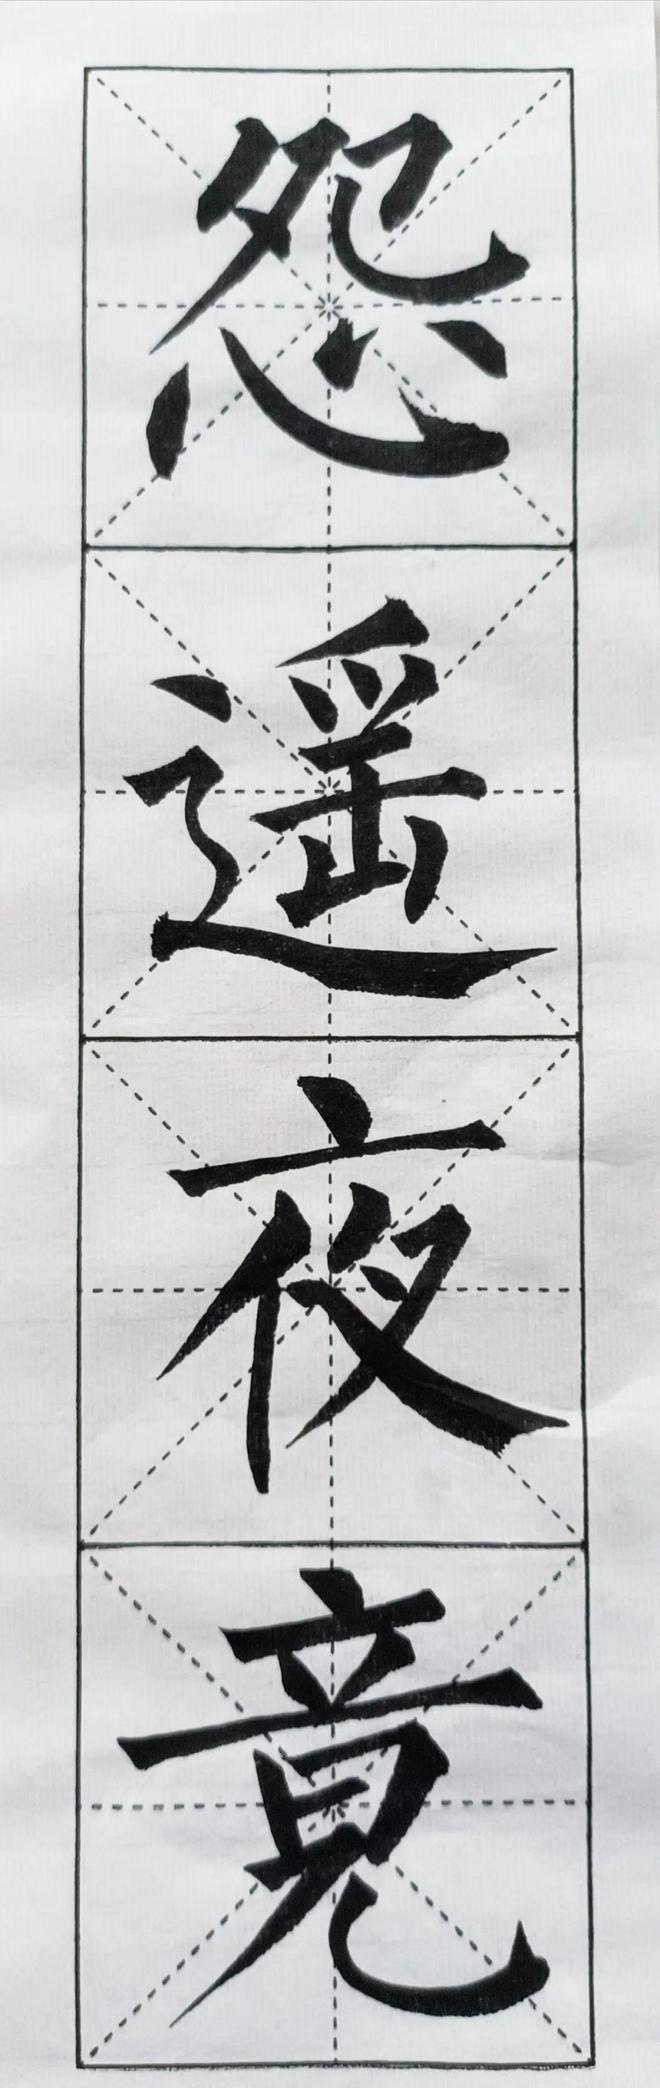 怨遥夜竟